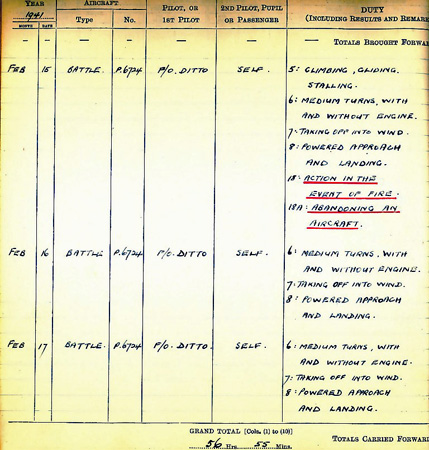 YEAR AIRCRAFT PILOT, OR 2ND PILOT, PUPIL DUTY
1941 Type No. 1ST PILOT OR PASSENGER (INCLUDING RESULTS AND REMAR
MONTH DATE
— — — — — — TOTALS BROUGHT FORWAR
FEB 15 BATTLE. P.6724 P/O. DITTO SELF. 5: CLIMBING, GLIDING.
STALLING.
6: MEDIUM TURNS, WITH
AND WITHOUT ENGINE.
7: TAKING OFF INTO WIND.
8: POWERED APPROACH
AND LANDING.
18: ACTION IN THE
EVENT OF FIRE.
18A: ABANDONING AN
AIRCRAFT.
FEB 16 BATTLE P.6724 P/O. DITTO SELF. 6: MEDIUM TURNS, WITH
AND WITHOUT ENGINE.
7: TAKING OFF INTO WIND.
8: POWERED APPROACH
AND LANDING.
FEB 17 BATTLE. P.6724 P/O. DITTO. SELF. 6: MEDIUM TURNS, WITH
AND WITHOUT ENGINE.
7: TAKING OFF INTO WIND.
8: POWERED APPROACH
AND LANDING.
GRAND TOTAL [Cols. (1) to (10)]
56 Hrs. 55 Mins. TOTALS CARRIED FORWARD